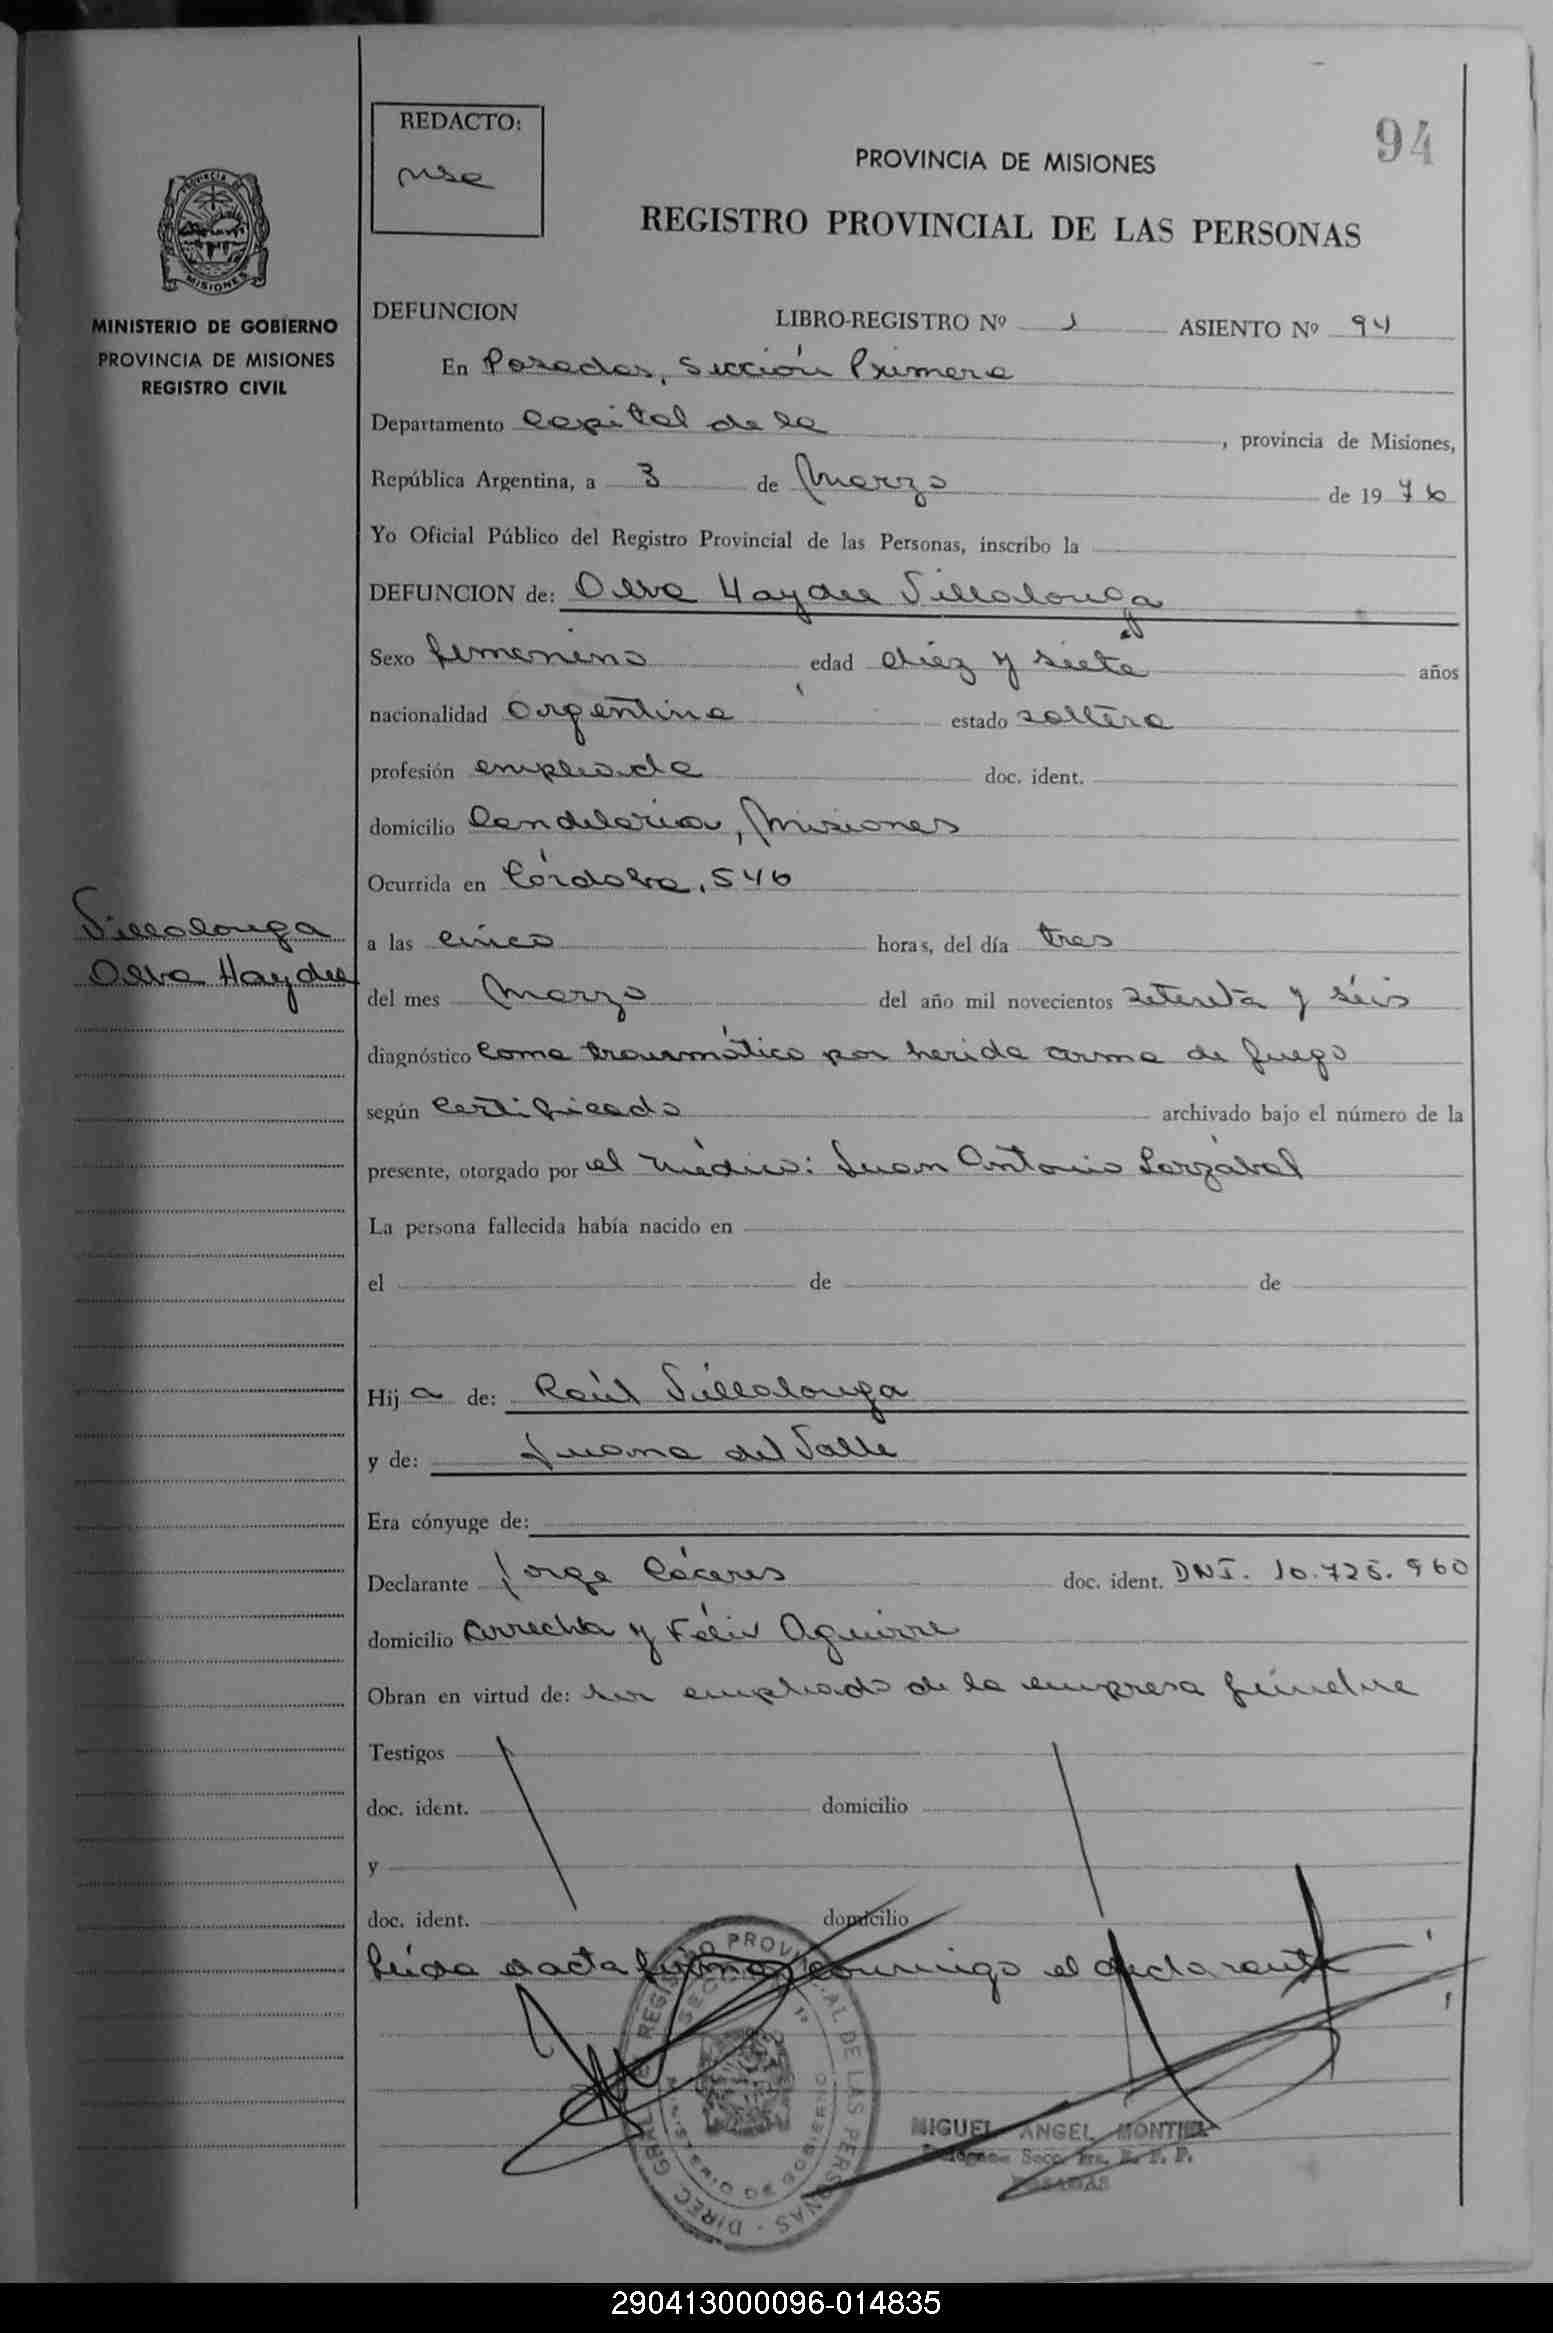 94
REDACTO:
PROVINCIA DE MISIONES
REGISTRO PROVINCIAL DE LAS PERSONAS
PROVINCIA DE
MISIONES
MINISTERIO DE GOBIERNO
PROVINCIA DE MISIONES
REGISTRO CIVIL
DEFUNCION LIBRO-REGISTRO Nº 1 ASIENTO Nº 94
En Posadas, Sección Primera
Departamento Capital de la , provincia de Misiones,
República Argentina, a 3 de Marzo de 19 76
Yo Oficial Público del Registro Provincial de las Personas, inscribo la
DEFUNCION de: Olva Haydee Villalonga
Sexo femenino edad diez y siete años
nacionalidad argentina estado soltera
profesión empleada doc. ident.
domicilio Candelaria, Misiones
Ocurrida en Córdoba, 546
Villalonga
Olva Haydee
a las cinco horas, del día tres
del mes Marzo del año mil novecientos setenta y séis
diagnóstico Coma traumático por herida arma de fuego
según Certificado archivado bajo el número de la
presente, otorgado por el Médico: Juan Antonio Larzábal
La persona fallecida había nacido en
el de de
Hij a de: Raúl Villalonga
y de: Juana del Valle
Era cónyuge de:
Declarante Jorge Cáceres doc. ident. DNI. 10.725.960
domicilio Arrechea y Félix Aguirre
Obran en virtud de: ser empleado de la empresa fúnebre
Testigos
doc. ident. domicilio
y
doc. ident. domicilio
Leída el acta firma conmigo el declarante
REGISTRO PROVINCIAL DE LAS PERSONAS - DIREC. GRAL.
SECCION 1ª
MINISTERIO DE GOBIERNO
MIGUEL ANGEL MONTIEL
POSADAS
290413000096-014835